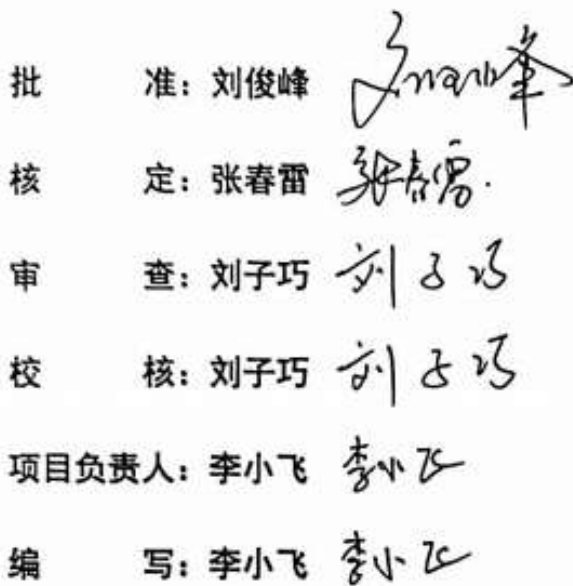 批 准：刘俊峰
核 定：张春雷 张春雷
审 查：刘子巧 刘子巧
校 核：刘子巧 刘子巧
项目负责人：李小飞 李小飞
编 写：李小飞 李小飞